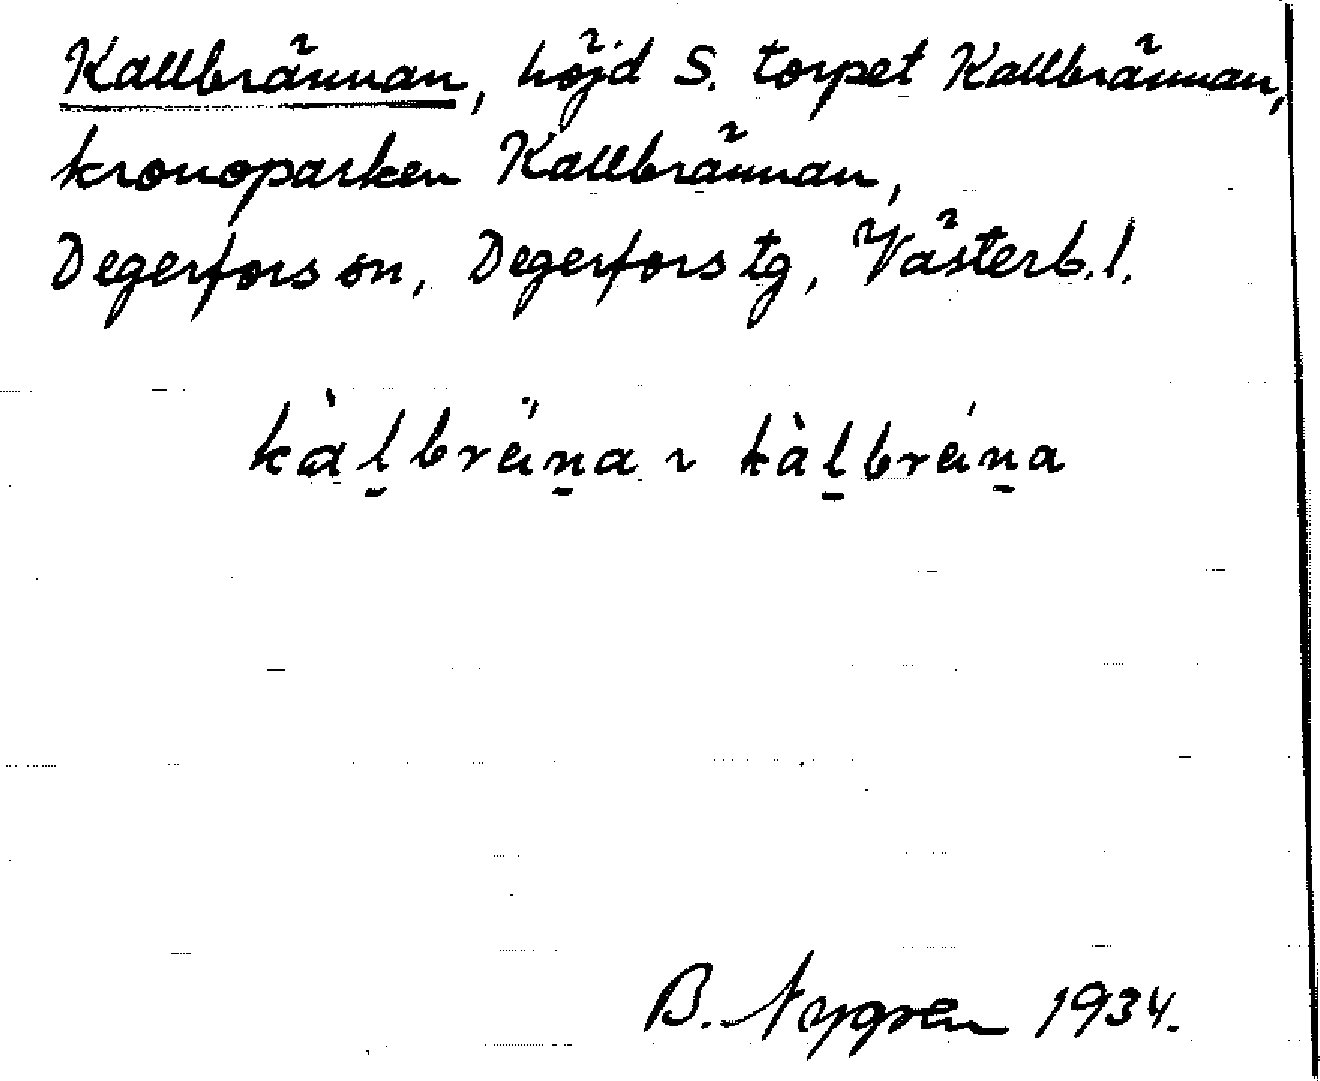 Kallbrännan, höjd S. torpet Kallbrännan,
kronoparken Kallbrännan,
Degerfors sn, Degerfors tg, Västerb. l.
kàl̠brän̠a ~ kàl̠brán̠a
B. Nygren 1934.